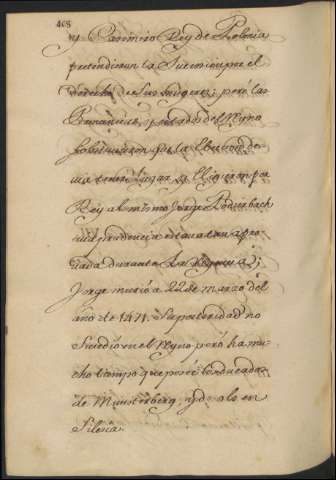 408
y Casimiro Rey de Polonia
pretendieron la Sucesion por el
derecho de Sus mugeres; peró las
Provincias, y estados del Reyno
Sobstuvieron que la Eleccion de-
via tener lugar, y Eligieron por
Rey al mismo Jorge Podierbach
cuia prudencia estava tan apro-
vada durante la Regencia;
Jorge murió a 22 de marzo del
año de 1471. Su posteridad no
Sucedió en el Reyno peró ha mu-
cho tiempo que poseé los ducados
de Munsterberg, y de als en
Silesia.